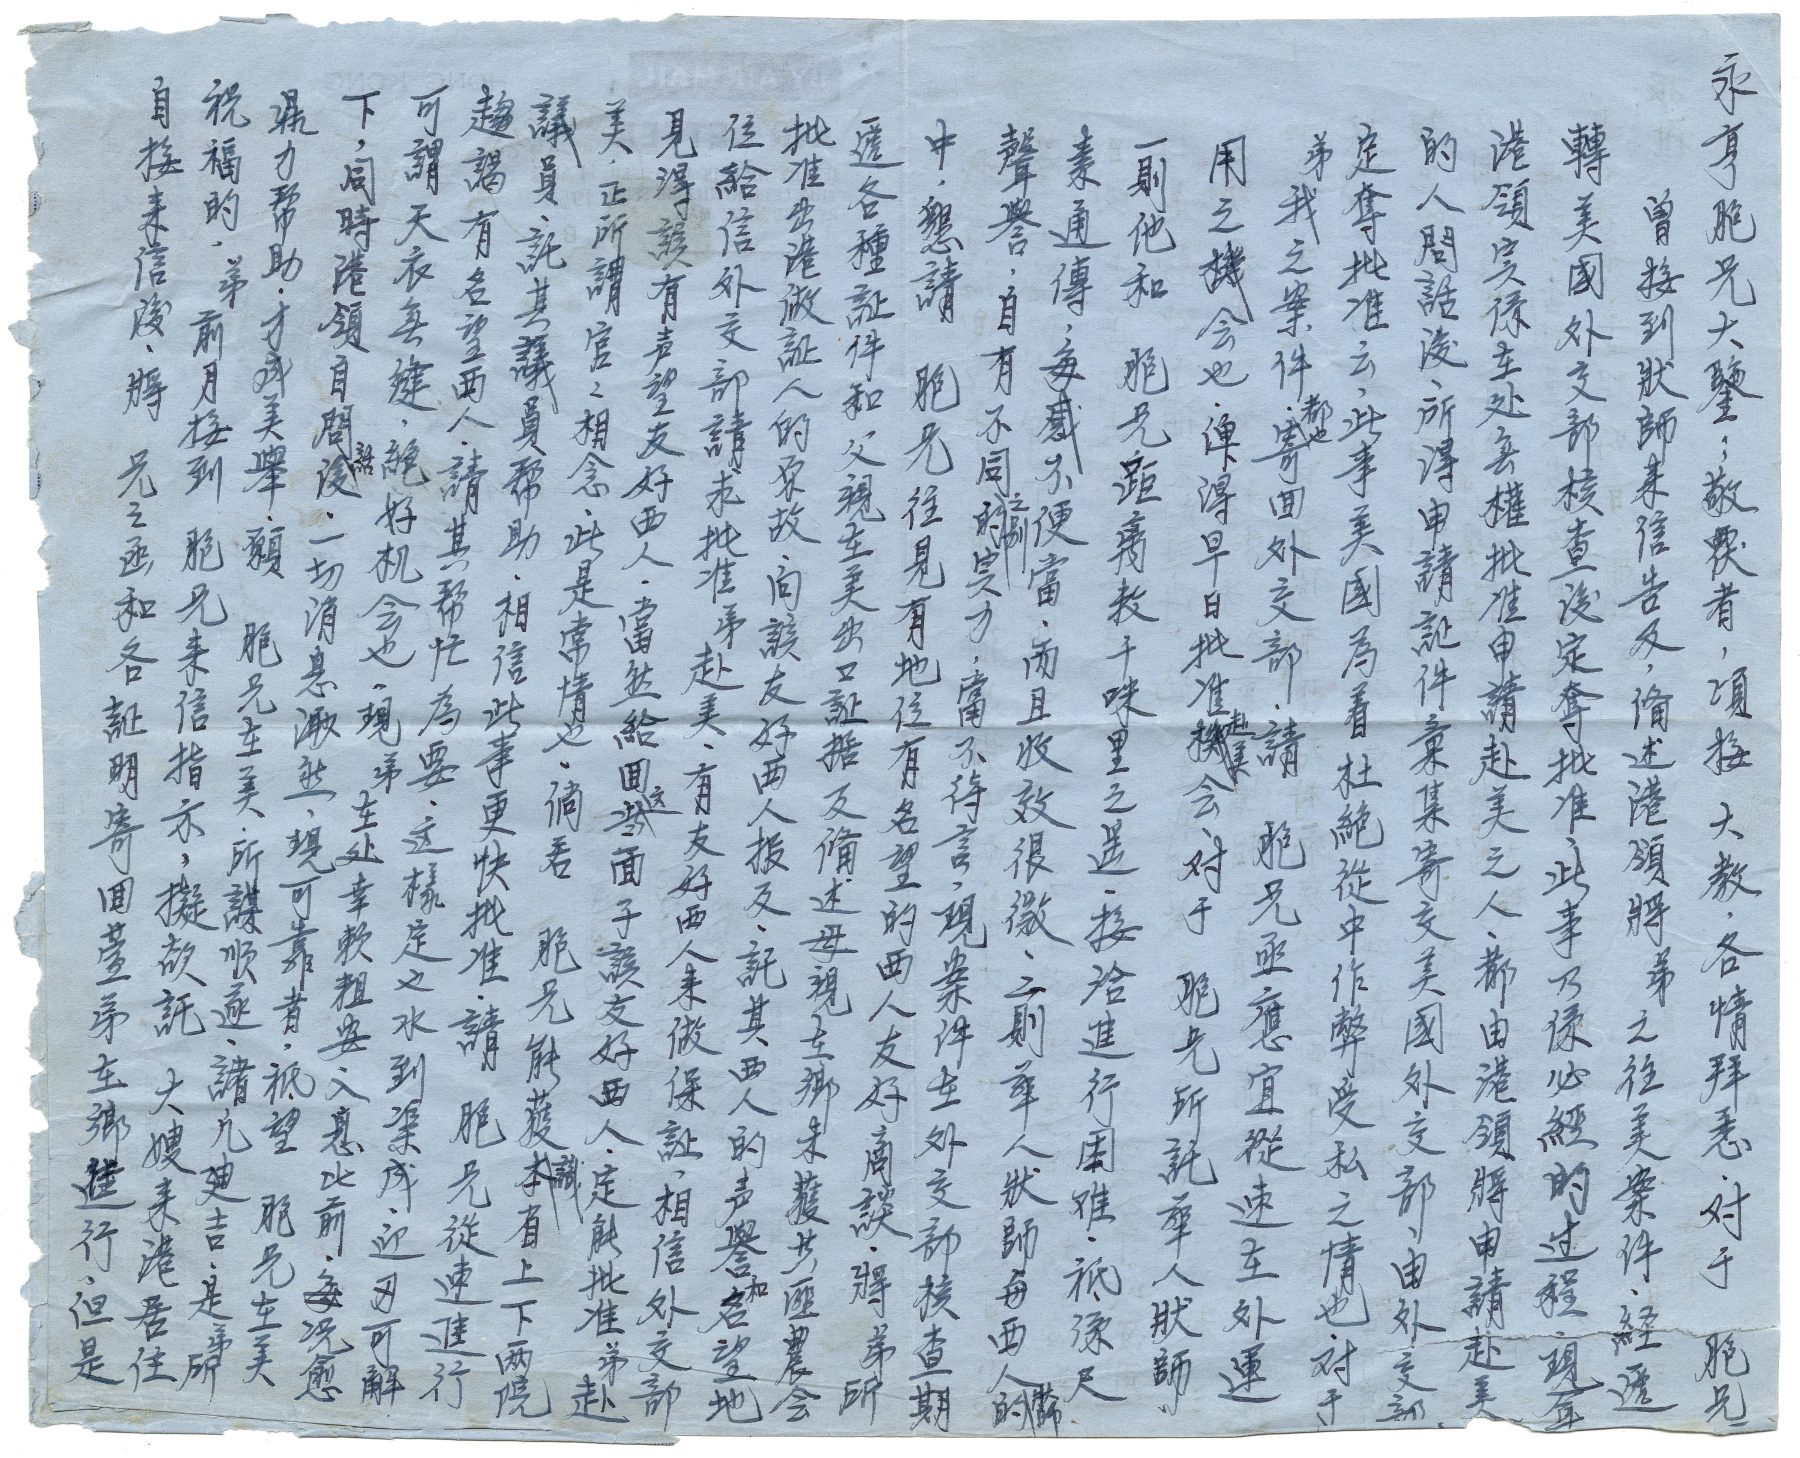 永亨胞兄大鑒：敬覆者，項接 大教，各情拜悉，对于 胞兄
曾接到狀師来信告及，俻述港領將弟之往美案件，経遞
轉美國外交部核查後定奪批准，此事乃係必經的过程，現年
港領実係在处無權批准申請赴美之人，都由港領將申請赴美
的人問話後，所得申請証件彙集寄交美國外交部，由外交部
定奪批准云，此事美國為着杜絶從中作弊受私之情也，对于
弟我之案件都也寄回外交部，請 胞兄亟應宜從速在外運
用之機会也，俾得早日批准赴美機会，对于 胞兄所託華人狀師
一則他和 胞兄距離数千咪里之遥，接洽進行困难，祗係尺
素通傳，每感不便當，而且收效很微，二則華人狀師每西人的
聲譽，自有不同之別的实力，當不待言，現案件在外交部核查期
中，懇請 胞兄往見有地位有名望的西人友好商談，將弟所
遞各種証件和父親在美出口証据及俻述母親在鄉未獲共匪農会
批准出港做証人的原故，向該友好西人报及，託其西人的声譽和名望地
位給信外交部請求批准弟赴美，有友好西人来做保証，相信外交部
見得該有声望友好西人，當然給回这面子該友好西人，定能批准弟赴
美，正所謂官官相念，此是常情也，倘若 胞兄能獲識有上下兩院
議員，託其議員幫助，相信此事更快批准，請 胞兄從速進行
趨謁有名望西人，請其幫忙為要，这樣定必水到渠成，迎刃可解
可謂天衣無縫，絶好机会也，現弟在处幸軟粗安，入息比前，每况愈
下，同時港領自問話後，一切消息渺然，現可靠者，祗望 胞兄在美
鼎力幫助，才成美舉，願 胞兄在美，所謀順遂，諸凡迪吉，是弟所
祝福的，弟前月接到 胞兄来信指示，擬欲託 大嫂来港居住
自接来信後，將 兄之函和各証明寄回萱弟在鄉進行，但是